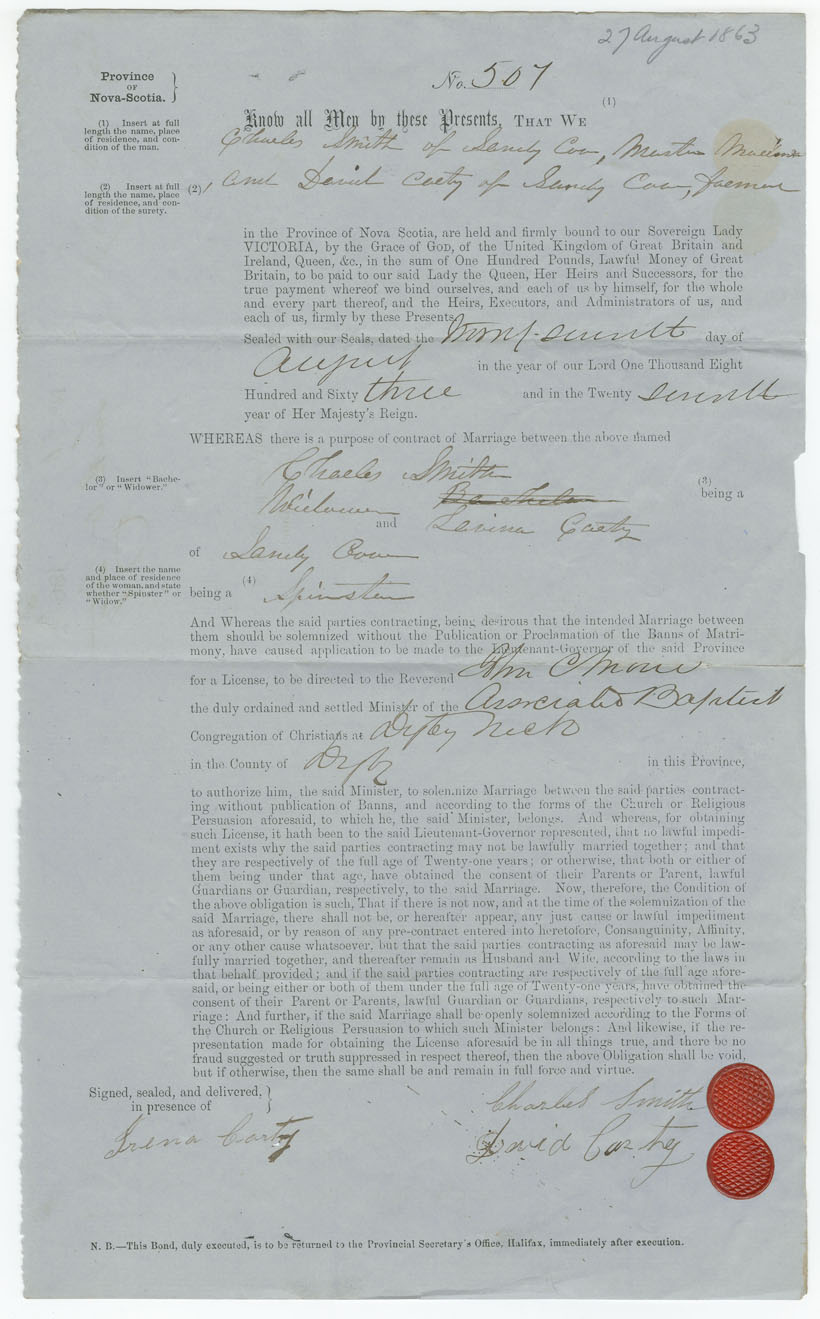 27 August 1863
Province
OF
Nova-Scotia.
No. 507
(1) Insert at full
length the name, place
of residence, and con-
dition of the man.
(1)
Know all Men by these Presents, THAT WE
Charles Smith of Sandy Cove, Master Mariner
(2) Insert at full
length the name, place
of residence, and con-
dition of the surety.
(2) and David Carty of Sandy Cove, farmer
in the Province of Nova Scotia, are held and firmly bound to our Sovereign Lady
VICTORIA, by the Grace of GOD, of the United Kingdom of Great Britain and
Ireland, Queen, &c., in the sum of One Hundred Pounds, Lawful Money of Great
Britain, to be paid to our said Lady the Queen, Her Heirs and Successors, for the
true payment whereof we bind ourselves, and each of us by himself, for the whole
and every part thereof, and the Heirs, Executors, and Administrators of us, and
each of us, firmly by these Presents.
Sealed with our Seals, dated the Twenty-seventh day of
August in the year of our Lord One Thousand Eight
Hundred and Sixty three and in the Twenty seventh
year of Her Majesty's Reign.
WHEREAS there is a purpose of contract of Marriage between the above named
Charles Smith
(3) Insert "Bache-
lor" or "Widower."
(3)
being a
Widower Bachelor
and Lavina Carty
of Sandy Cove
(4) Insert the name
and place of residence
of the woman, and state
whether "Spinster" or
"Widow."
(4)
being a Spinster
And Whereas the said parties contracting, being desirous that the intended Marriage between
them should be solemnized without the Publication or Proclamation of the Banns of Matri-
mony, have caused application to be made to the Lieutenant-Governor of the said Province
for a License, to be directed to the Reverend John C Morse
the duly ordained and settled Minister of the Associated Baptist
Congregation of Christians at Digby Neck
in the County of Digby in this Province,
to authorize him, the said Minister, to solemnize Marriage between the said parties contract-
ing without publication of Banns, and according to the forms of the Church or Religious
Persuasion aforesaid, to which he, the said Minister, belongs. And whereas, for obtaining
such License, it hath been to the said Lieutenant-Governor represented, that no lawful impedi-
ment exists why the said parties contracting may not be lawfully married together; and that
they are respectively of the full age of Twenty-one years; or otherwise, that both or either of
them being under that age, have obtained the consent of their Parents or Parent, lawful
Guardians or Guardian, respectively, to the said Marriage. Now, therefore, the Condition of
the above obligation is such, That if there is not now, and at the time of the solemnization of the
said Marriage, there shall not be, or hereafter appear, any just cause or lawful impediment
as aforesaid, or by reason of any pre-contract entered into heretofore, Consanguinity, Affinity,
or any other cause whatsoever, but that the said parties contracting as aforesaid may be law-
fully married together, and thereafter remain as Husband and Wife, according to the laws in
that behalf provided; and if the said parties contracting are respectively of the full age afore-
said, or being either or both of them under the full age of Twenty-one years, have obtained the
consent of their Parent or Parents, lawful Guardian or Guardians, respectively to such Mar-
riage: And further, if the said Marriage shall be openly solemnized according to the Forms of
the Church or Religious Persuasion to which such Minister belongs: And likewise, if the re-
presentation made for obtaining the License aforesaid be in all things true, and there be no
fraud suggested or truth suppressed in respect thereof, then the above Obligation shall be void,
but if otherwise, then the same shall be and remain in full force and virtue.
Signed, sealed, and delivered,
in presence of
Charles Smith
Irena Carty
David Carty
N. B.—This Bond, duly executed, is to be returned to the Provincial Secretary's Office, Halifax, immediately after execution.